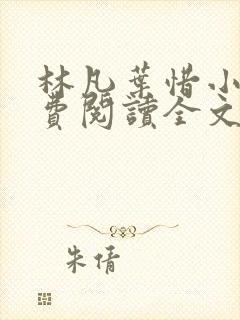 林凡葉惜小
費閱讀全文
朱倩